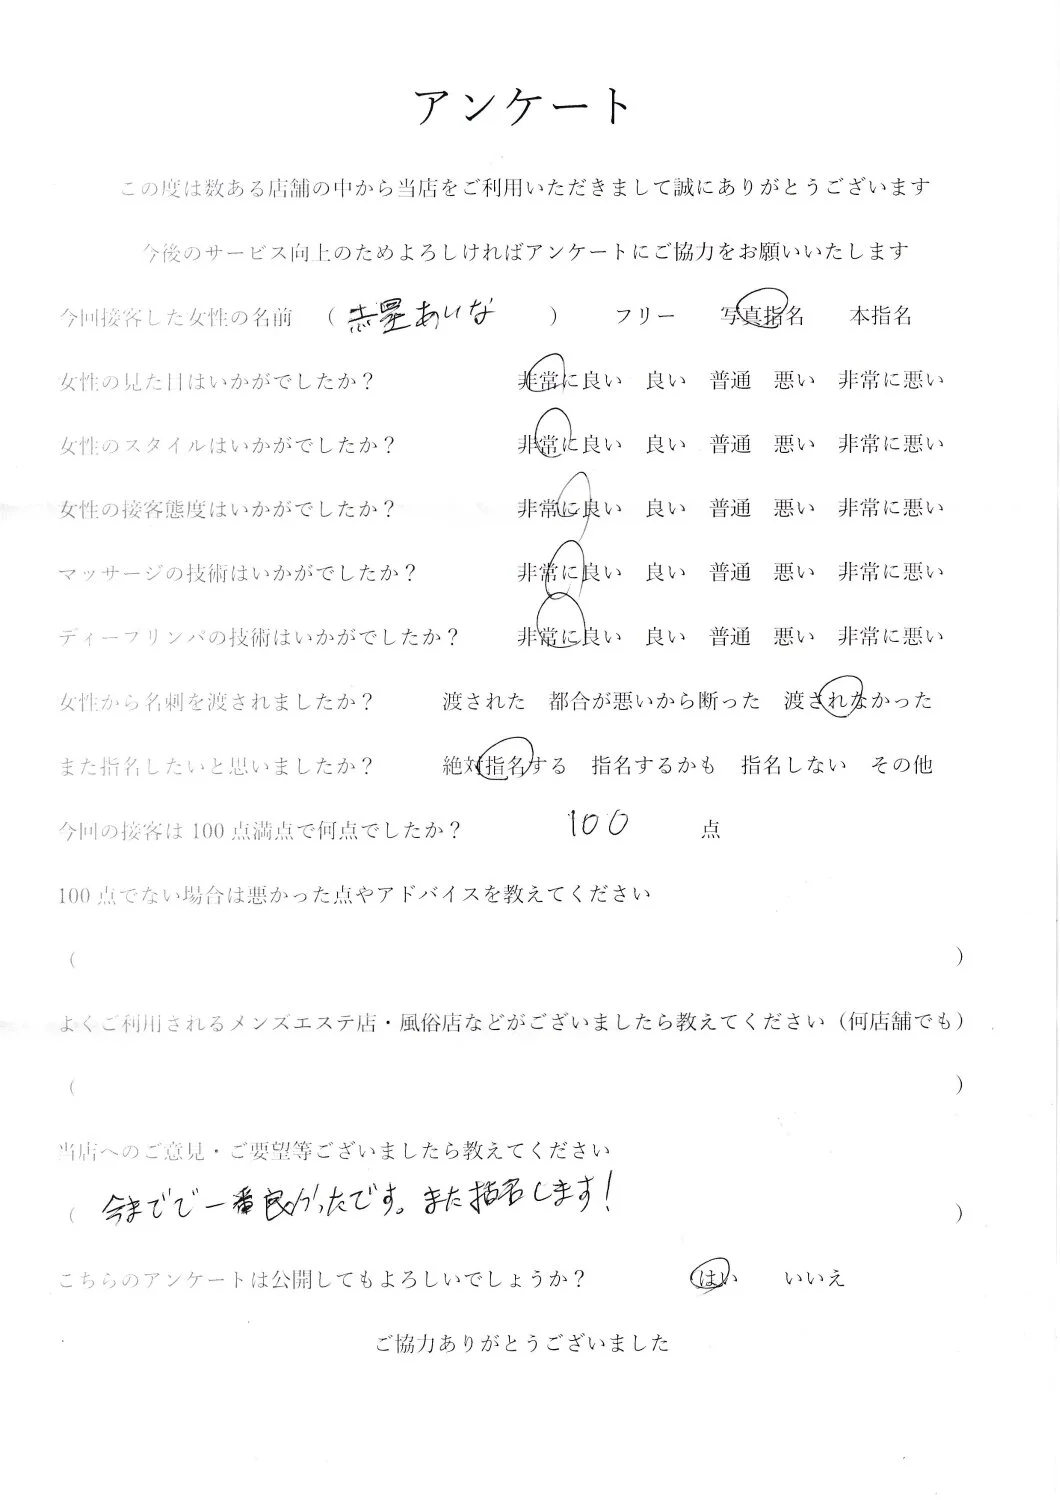 アンケート
この度は数ある店舗の中から当店をご利用いただきまして誠にありがとうございます
今後のサービス向上のためよろしければアンケートにご協力をお願いいたします
今回接客した女性の名前 ( 赤星あいな ) フリー 写真指名 本指名
女性の見た目はいかがでしたか? 非常に良い 良い 普通 悪い 非常に悪い
女性のスタイルはいかがでしたか? 非常に良い 良い 普通 悪い 非常に悪い
女性の接客態度はいかがでしたか? 非常に良い 良い 普通 悪い 非常に悪い
マッサージの技術はいかがでしたか? 非常に良い 良い 普通 悪い 非常に悪い
ディープリンパの技術はいかがでしたか? 非常に良い 良い 普通 悪い 非常に悪い
女性から名刺を渡されましたか? 渡された 都合が悪いから断った 渡されなかった
また指名したいと思いましたか? 絶対指名する 指名するかも 指名しない その他
今回の接客は 100 点満点で何点でしたか? 100 点
100 点でない場合は悪かった点やアドバイスを教えてください
( )
よくご利用されるメンズエステ店・風俗店などがございましたら教えてください（何店舗でも）
( )
当店へのご意見・ご要望等ございましたら教えてください
( 今までで一番良かったです。また指名します! )
こちらのアンケートは公開してもよろしいでしょうか? はい いいえ
ご協力ありがとうございました